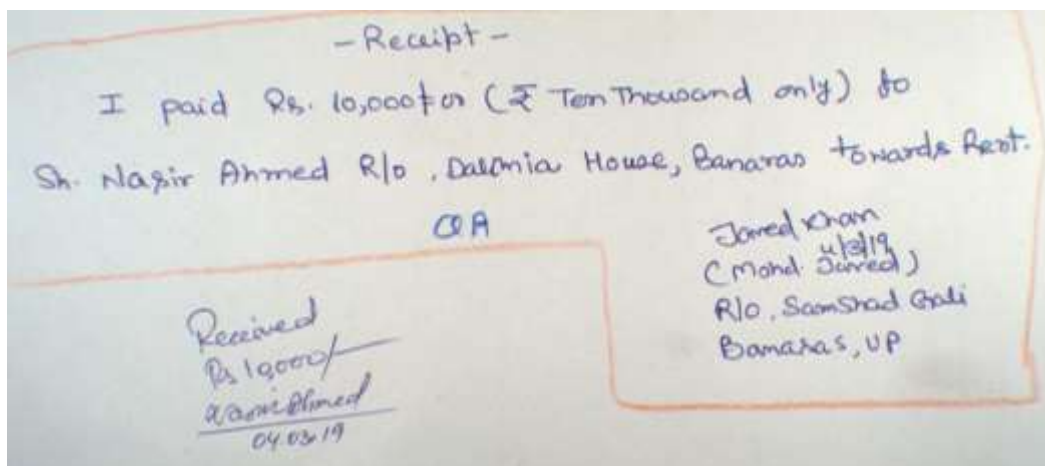 - Receipt -
I paid Rs. 10,000/- or (₹ Ten Thousand only) to
Sh. Nasir Ahmed R/o, Dalmia House, Banaras towards Rent.
QA
Javed Khan
4/3/19
(Mohd. Javed)
R/o, Samshad Gali
Banaras, UP
Received
Rs 10,000/-
Ahmed
04.03.19